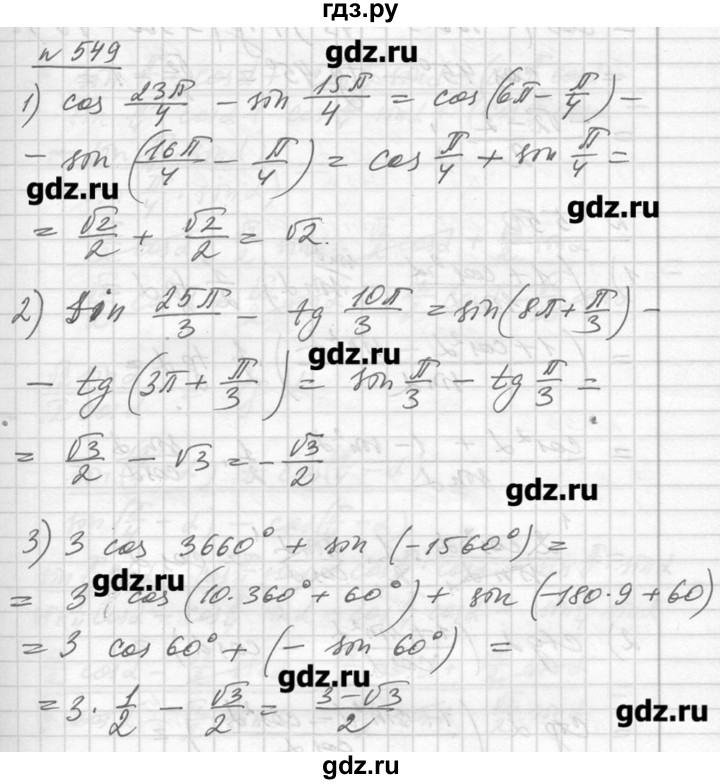 гдз.ру
n 549
gdz.ru
1) cos 23π/4 − sin 15π/4 = cos(6π − π/4) −
− sin(16π/4 − π/4) = cos π/4 + sin π/4 =
gdz.ru
gdz.ru
= √2/2 + √2/2 = √2.
2) sin 25π/3 − tg 10π/3 = sin(8π + π/3) −
gdz.ru
− tg(3π + π/3) = sin π/3 − tg π/3 =
= √3/2 − √3 = −√3/2
gdz.ru
3) 3 cos 3660° + sin (−1560°) =
gdz.ru
= 3 cos(10·360° + 60°) + sin(−180·9 + 60)
= 3 cos 60° + (− sin 60°) =
gdz.ru
= 3 · 1/2 − √3/2 = 3−√3/2
gdz.ru
гдз.ру